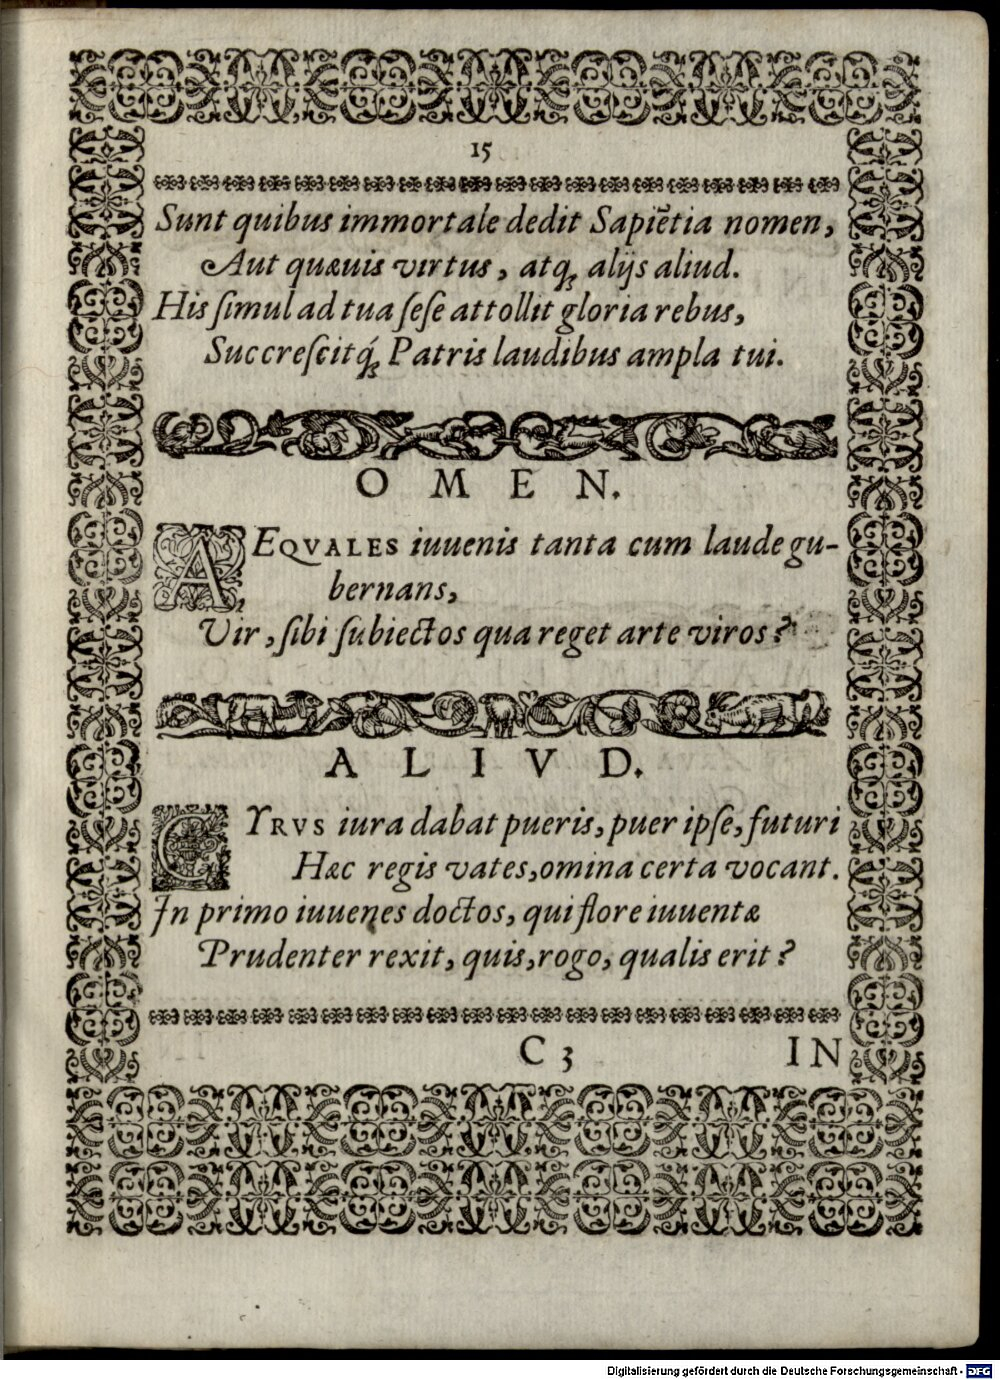 15
Sunt quibus immortale dedit Sapiẽtia nomen,
Aut quæuis virtus, atq; alijs aliud.
His ſimul ad tua ſeſe attollit gloria rebus,
Succreſcitq́; Patris laudibus ampla tui.
O M E N.
AEQVALES iuuenis tanta cum laude gu-
bernans,
Vir, ſibi ſubiectos qua reget arte viros?
A L I V D.
CYRVS iura dabat pueris, puer ipſe, futuri
Hæc regis vates, omina certa vocant.
In primo iuuenes doctos, qui flore iuuentæ
Prudenter rexit, quis, rogo, qualis erit?
C 3 IN
Digitalisierung gefördert durch die Deutsche Forschungsgemeinschaft - DFG